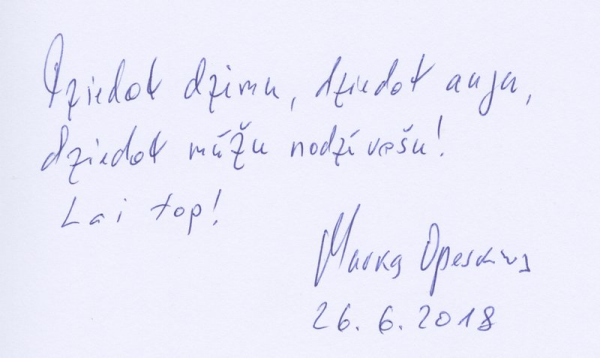 Dziedot dzimu, dziedot augu,
dziedot mūžu nodzīvošu!
Lai top!
26.6.2018